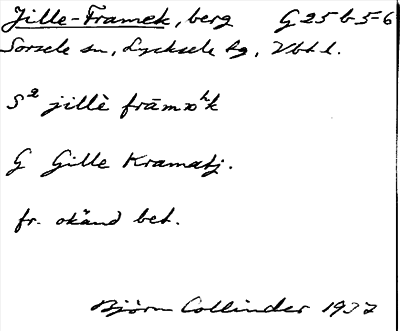 Jille-Framek, berg G 25 b 5-6
Sorsele sn, Lycksele tg, Vbtl.
S² jillè frāmɒʰk
G Gille Kramatj.
fr. okänd bet.
Björn Collinder 1937